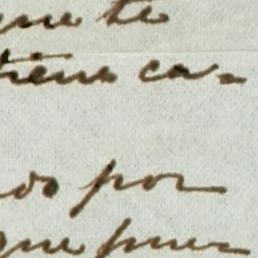 que te
tiene ca-
do por
que pue-